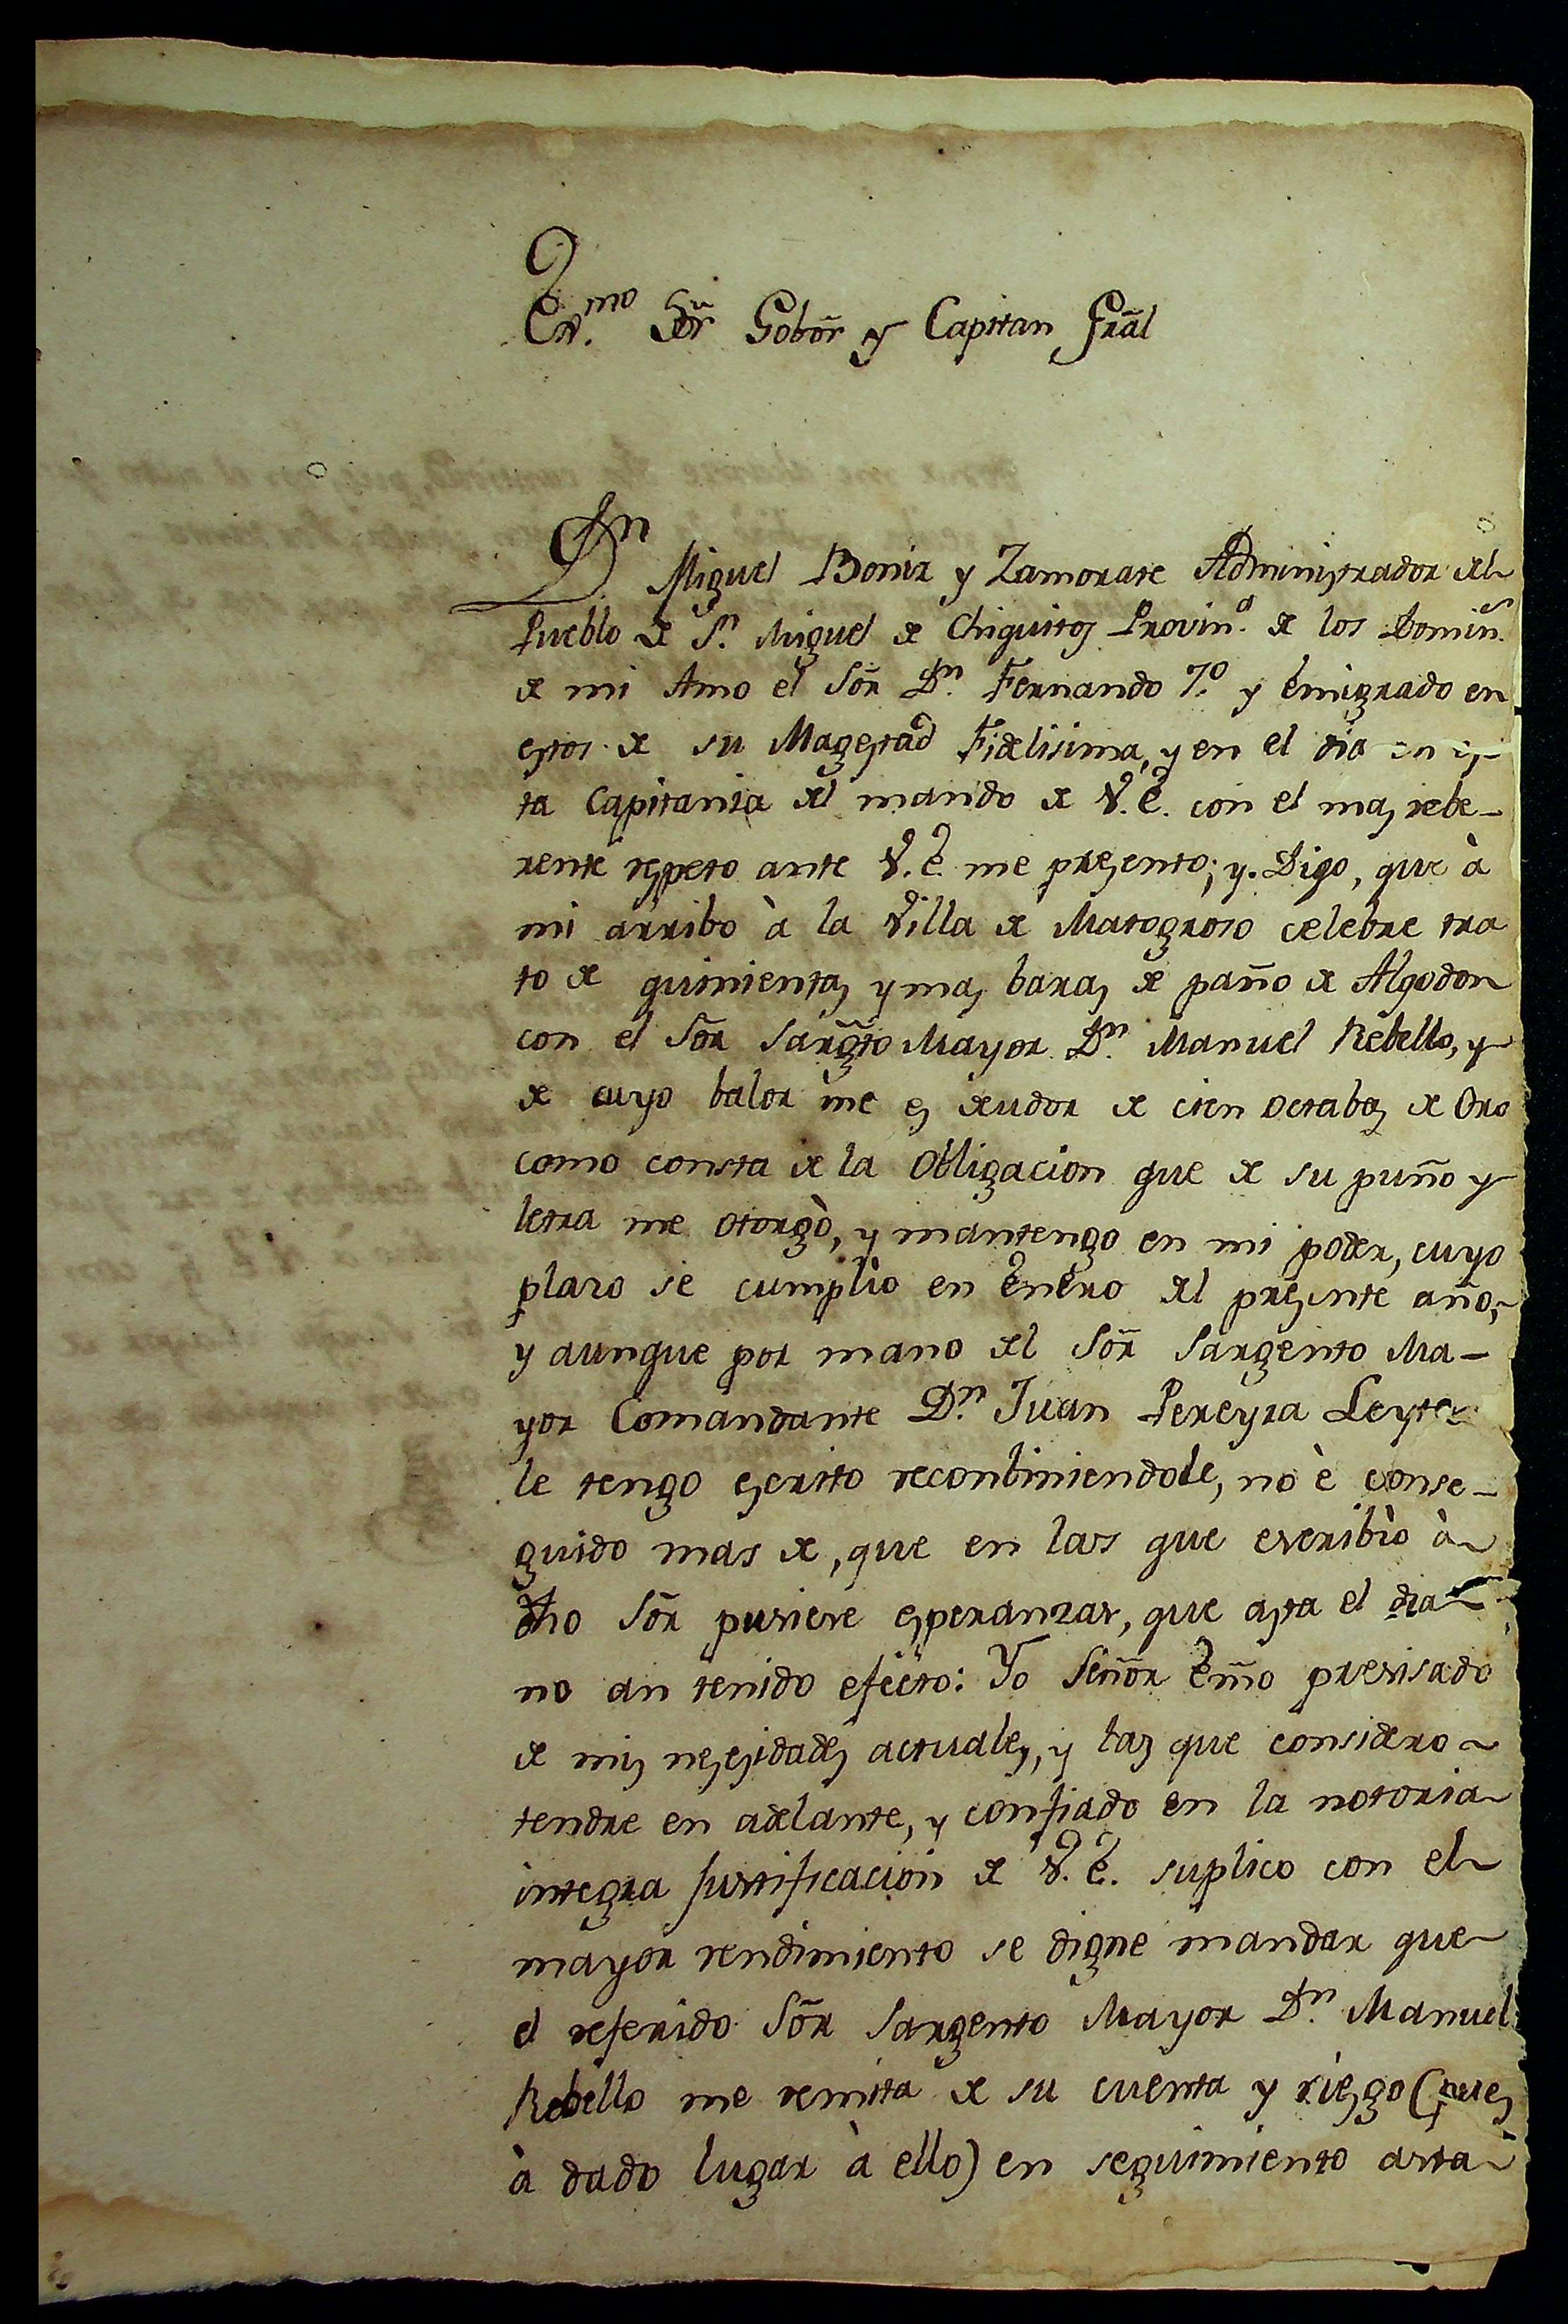 Ex.mo Sõr Gobõr y Capitan Grãl
Dn Miguel Boniz y Zamorate Administrador del
Pueblo de Sn. Miguel de Chiquitos Provina. de los Domins.
de mi Amo el Sõr Dn. Fernando 7.º y emigrado en
estos de su Magestad Fidelisima, y en el dia en es-
ta Capitania del mando de V.E. con el mas rebe-
rente respeto ante V.E. me presento; y Digo, que à
mi arribo à la Villa de Matogroso celebre tra
to de quinientas y mas baras de paño de Algodon
con el Sõr Sargto Mayor Dn. Manuel Rebello, y
de cuyo balor me es deudor de cien octabas de Oro
como consta de la Obligacion que de su puño y
letra me otorgò, y mantengo en mi poder, cuyo
plazo se cumpliò en Enero del presente año,
y aunque por mano del Sõr Sargento Ma-
yor Comandante Dn. Juan Pereyra Leyte
le tengo escrito reconbiniendole, no è conse-
guido mas de, que en las que escribiò à
dho Sõr pusiese esperanzas, que asta el dia
no an tenido efecto: Yo Señor Em̃o presisado
de mis nesesidades actuales, y las que considero
tendre en adelante, y confiado en la notoria
integra justificacion de V.E. suplico con el
mayor rendimiento se digne mandar que
el referido Sõr Sargento Mayor Dn. Manuel
Rebello me remita de su cuenta y riesgo (pues
à dado lugar à ello) en seguimiento asta